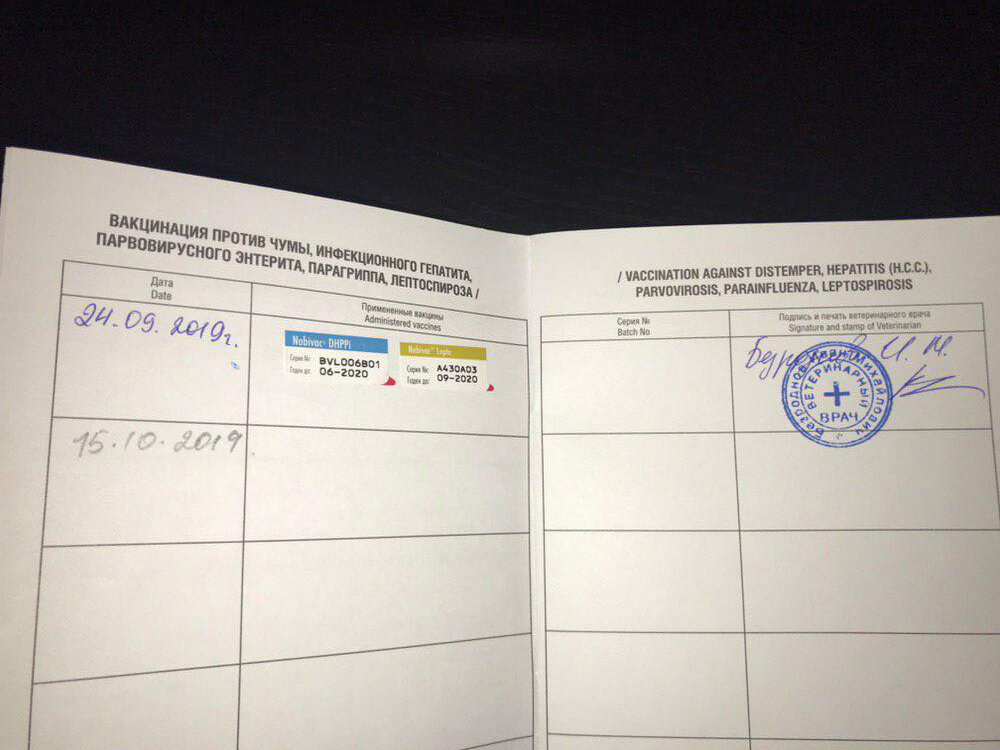 ВАКЦИНАЦИЯ ПРОТИВ ЧУМЫ, ИНФЕКЦИОННОГО ГЕПАТИТА,
ПАРВОВИРУСНОГО ЭНТЕРИТА, ПАРАГРИППА, ЛЕПТОСПИРОЗА /
Дата
Date
Примененные вакцины
Administered vaccines
24.09.2019г.
Nobivac® DHPPi
Серия №: BVL006B01
Годен до: 06-2020
Nobivac® Lepto
Серия №: A430A03
Годен до: 09-2020
15.10.2019
/ VACCINATION AGAINST DISTEMPER, HEPATITIS (H.C.C.),
PARVOVIROSIS, PARAINFLUENZA, LEPTOSPIROSIS
Серия №
Batch No
Подпись и печать ветеринарного врача
Signature and stamp of Veterinarian
И. М.
Безроднов Иван Михайлович
ВЕТЕРИНАРНЫЙ
ВРАЧ